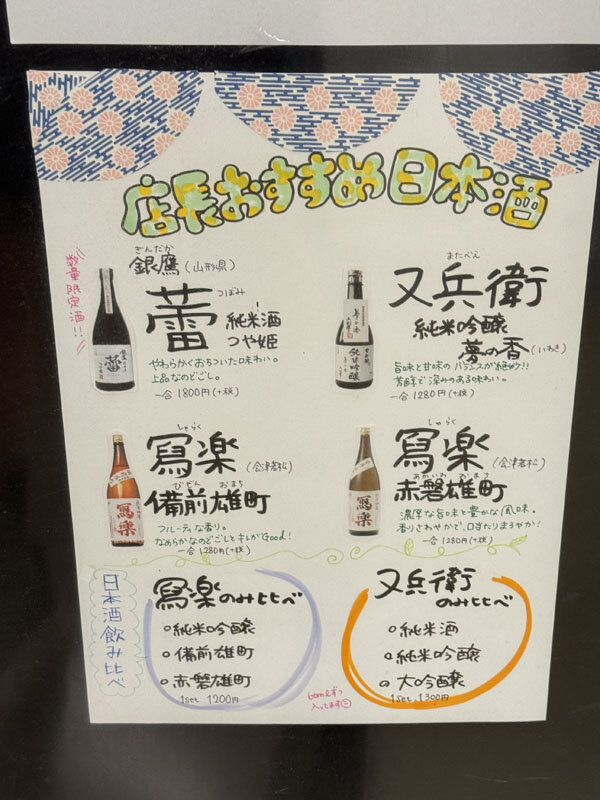 店長おすすめ日本酒
数量限定酒!!
ぎんだか
銀鷹(山形県)
つぼみ
蕾 純米酒
つや姫
やわらかくおちついた味わい。
上品なのどごし。
一合 1800円(+税)
またべえ
又兵衛
純米吟醸
夢の香(いわき)
旨味と甘味のバランスが絶妙!!
芳醇で深みのある味わい。
一合 1280円(+税)
しゃらく
寫楽(会津若松)
びぜん おまち
備前雄町
フルーティな香り。
なめらかなのどごしとキレがGood!
一合 1,280円(+税)
しゃらく
寫楽(会津若松)
あかいわ おまち
赤磐雄町
濃厚な旨味と豊かな風味。
香りさわやかで、口当たりまろやか!
一合 1280円(+税)
日本酒飲み比べ
寫楽のみ比べ
純米吟醸
備前雄町
赤磐雄町
1set 1200円
60mlずつ
入ってます
又兵衛
のみ比べ
純米酒
純米吟醸
大吟醸
1set 1300円